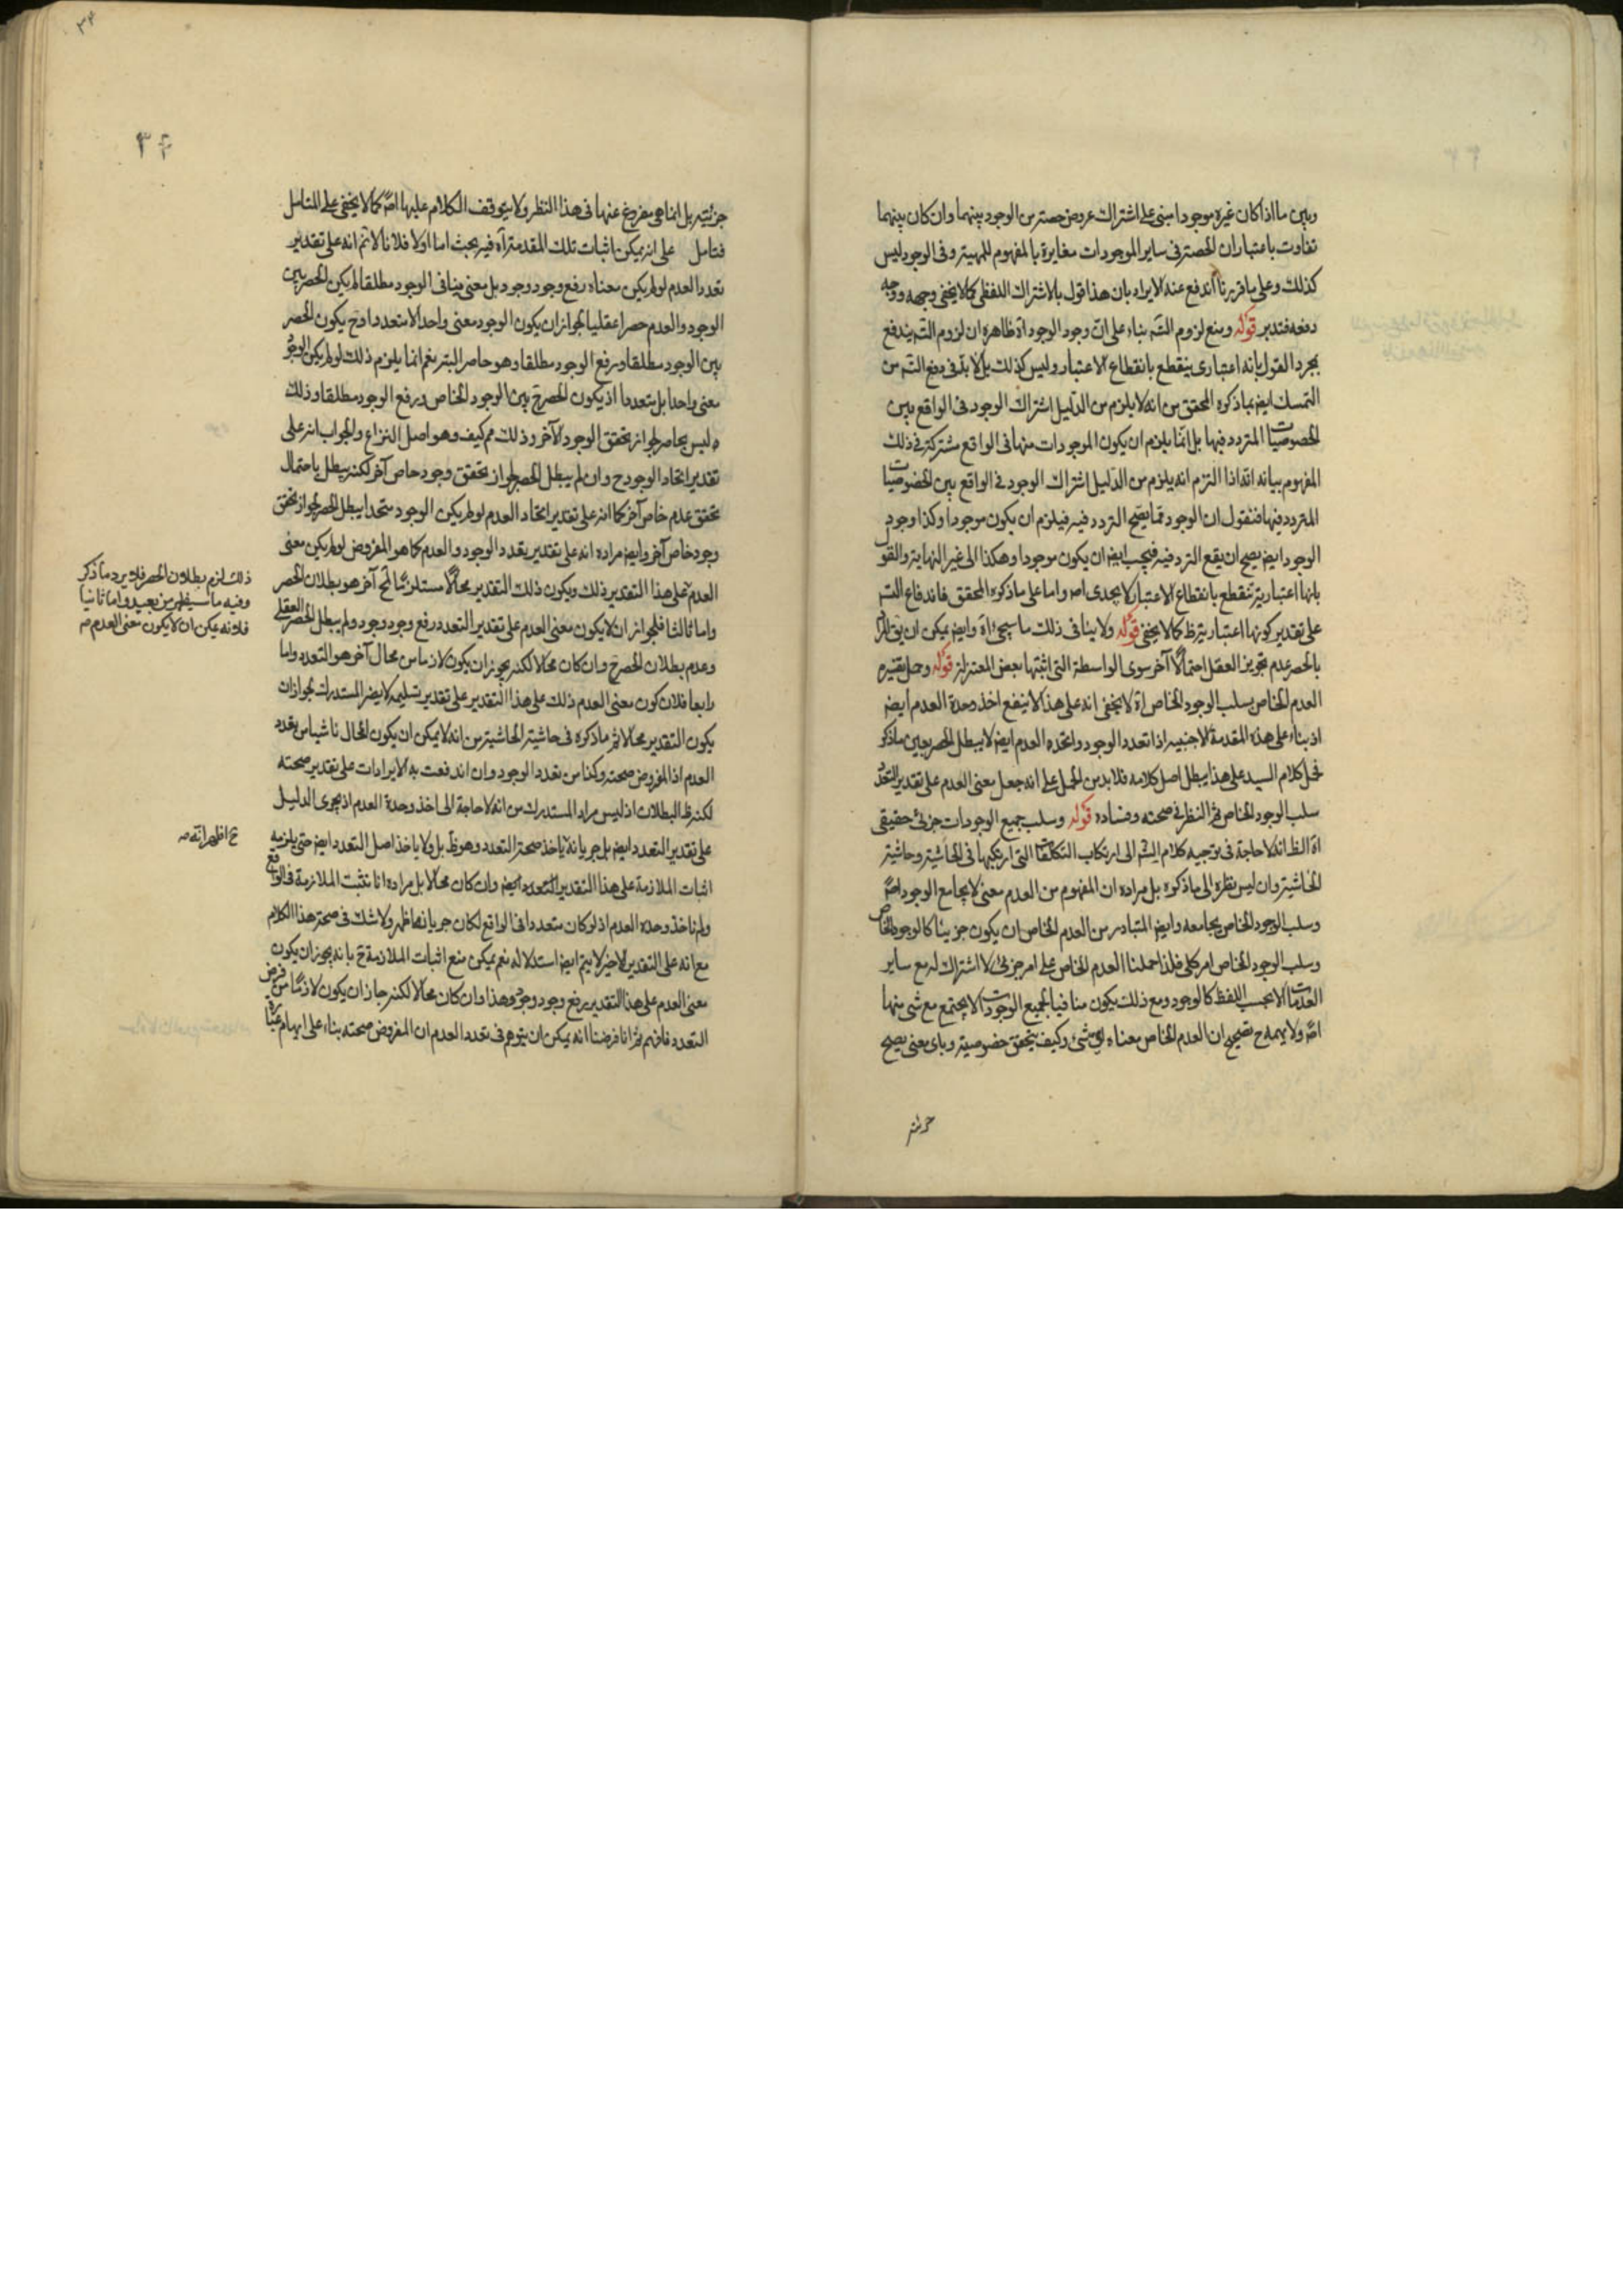 وبين ما اذا كان غيره موجودا مبنى على اشتراك عروض حصة من الوجود بينهما وان كان بينهما
تفاوت باعتبار ان الحصة فى ساير الموجودات مغايرة بالمفهوم للمهية وفى الوجود ليس
كذلك وعلى ما قررنا اندفع عنه الايراد بان هذا قول بالاشتراك اللفظى كما لا يخفى وجهه ووجه
دفعه فتدبر قوله ومنع لزوم التسم بناء على ان وجود الوجود اه ظاهره ان لزوم التسم يندفع
بمجرد القول بانه اعتبارى ينقطع بانقطاع الاعتبار وليس كذلك بل لا بد فى دفع التسم من
التمسك ايضا بما ذكره المحقق من انه لا يلزم من الدليل اشتراك الوجود فى الواقع بين
الخصوصيات المتردد فيها بل انما يلزم ان يكون الموجودات منها فى الواقع مشتركة فى ذلك
المفهوم بيانه انه اذا التزم انه يلزم من الدليل اشتراك الوجود فى الواقع بين الخصوصيات
المتردد فيها فنقول ان الوجود مما يصح التردد فيه فيلزم ان يكون موجودا وكذا وجود
الوجود ايضا يصح ان يقع التردد فيه فيجب ايضا ان يكون موجودا وهكذا الى غير النهاية والقول
بانها اعتبارية تنقطع بانقطاع الاعتبار لا يجدى اه واما على ما ذكره المحقق فاندفاع التسم
على تقدير كونها اعتبارية ظ كما لا يخفى قوله ولا ينافى ذلك ما سيجئ اه وايضا يمكن ان يق المراد
بالحصر عدم تجويز العقل احتمالا آخر سوى الواسطة التى اثبتها بعض المعتزلة قوله وحمل نقيضه
العدم الخاص بسلب الوجود الخاص اه لا يخفى انه على هذا لا ينفع اخذ وحدة العدم ايضا
اذ بناء على هذه المقدمة الاجنبية اذا تعدد الوجود واتحده العدم ايضا لا يبطل الحصر بعين ما ذكر
فحمل كلام السيد على هذا يبطل اصل كلامه فلا بد من الحمل على انه جعل معنى العدم على تقدير التعدد
سلب الوجود الخاص ثم النظر فى صحته وفساده قوله وسلب جميع الوجودات جزئى حقيقى
اه الظ انه لا حاجة فى توجيه كلام الش الى ارتكاب التكلفات التى ارتكبها فى الحاشية وحاشية
الحاشية وان ليس نظره الى ما ذكروه بل مراده ان المفهوم من العدم معنى لا يجامع الوجود اصلا
وسلب الوجود الخاص يجامعه وايضا المتبادر من العدم الخاص ان يكون جزئيا كالوجود الخاص
وسلب الوجود الخاص امر كلى فلذا حملنا العدم الخاص على امر جزئى لا اشتراك له مع ساير
العدمات الا بحسب اللفظ كالوجود ومع ذلك يكون منافيا لجميع الوجودات لا يجتمع مع شئ منها
اصلا ولا يهمه ح تصحيح ان العدم الخاص معناه اى شئ وكيف يتحقق خصوصيته وباى معنى يصح
جزئيته
٣٤
٣٤
جزئيته بل انما هى مفروغ عنها فى هذا النظر ولا يتوقف الكلام عليها اصلا كما لا يخفى على المتامل
فتامل على انه يمكن اثبات تلك المقدمة اه فيه بحث اما اولا فلانا لا نم انه على تقدير
تعدد العدم لو لم يكن معناه رفع وجود وجود بل معنى ينافى الوجود مطلقا لم يكن الحصر بين
الوجود والعدم حصرا عقليا لجواز ان يكون الوجود معنى واحدا لا متعددا وح يكون الحصر
بين الوجود مطلقا ورفع الوجود مطلقا وهو حاصر البتة نعم انما يلزم ذلك لو لم يكن الوجود
معنى واحدا بل متعددا اذ يكون الحصر ح بين الوجود الخاص ورفع الوجود مطلقا وذلك
ليس بحاصر لجواز تحقق الوجود الآخر وذلك مم كيف وهو اصل النزاع والجواب انه على
تقدير اتحاد الوجود ح وان لم يبطل الحصر لجواز تحقق وجود خاص آخر لكنه يبطل باحتمال
تحقق عدم خاص آخر كما انه على تقدير اتحاد العدم لو لم يكن الوجود متحدا يبطل الحصر لجواز تحقق
وجود خاص آخر وايضا مراده انه على تقدير تعدد الوجود والعدم كما هو المفروض لو لم يكن معنى
العدم على هذا التقدير ذلك ويكون ذلك التقدير محالا مستلزما لمح آخر هو بطلان الحصر
واما ثالثا فلجواز ان لا يكون معنى العدم على تقدير التعدد رفع وجود وجود ولم يبطل الحصر العقلى
وعدم بطلان الحصر ح وان كان محالا لكنه يجوز ان يكون لازما من محال آخر هو التعدد واما
رابعا فلان كون معنى العدم ذلك على هذا التقدير على تقدير تسليمه لا يضر المستدرك لجواز ان
يكون التقدير محالا ثم ما ذكره فى حاشية الحاشية من انه لا يمكن ان يكون المحال ناشيا من تعدد
العدم اذ المفروض صحته وكذا من تعدد الوجود وان اندفعت به الايرادات على تقدير صحته
لكنه ظ البطلان اذ ليس مراد المستدرك من انه لا حاجة الى اخذ وحدة العدم اذ يجرى الدليل
على تقدير التعدد ايضا بل جريانه باخذ صحة التعدد وهو ظ بل ولا باخذ اصل التعدد ايضا حتى يلزمه
اثبات الملازمة على هذا التقدير التعدد ايضا وان كان محالا بل مراده انا نثبت الملازمة فى الواقع
ولم ناخذ وحده العدم اذ لو كان متعددا فى الواقع لكان جريانها ظهر ولا شك فى صحة هذا الكلام
مع انه على التقدير الاخير لا يتم ايضا استدلاله نعم يمكن منع اثبات الملازمة ح بانه يجوز ان يكون
معنى العدم على هذا التقدير رفع وجود وجود وهذا وان كان محالا لكنه جاز ان يكون لازما من فرض
التعدد فافهم ثم انا فرضنا انه يمكن ان يتوهم فى تعدد العدم ان المفروض صحته بناء على ايهام
ذلك لزم بطلان الحصر فلا يرد ما ذكر
وفيه ما سيظهر من بعيد واما ثانيا
فلانه يمكن ان لا يكون معنى العدم صه